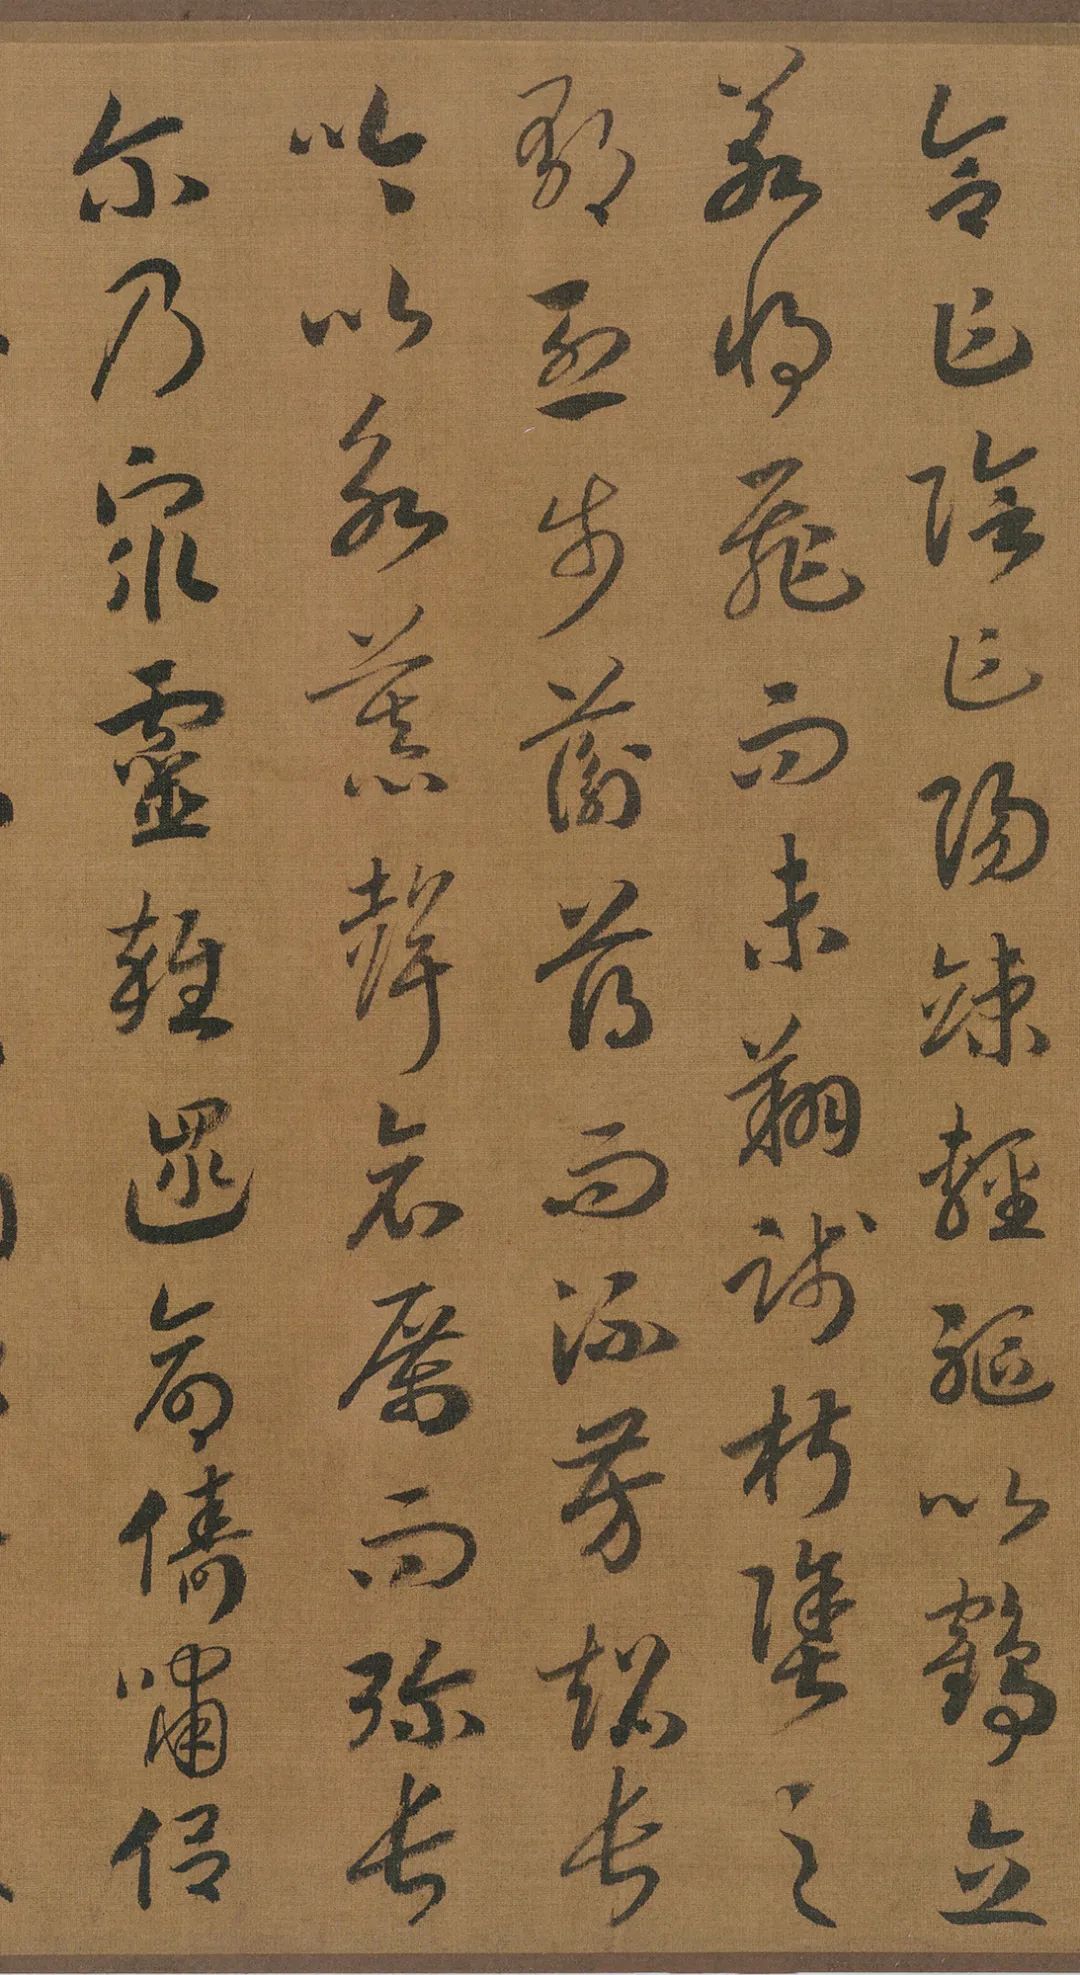 合乍陰乍陽竦輕軀以鶴立
若將飛而未翔踐椒塗之
郁烈步蘅薄而流芳超長
吟以永慕聲哀厲而弥長
尔乃眾靈雜遝命儔嘯侶